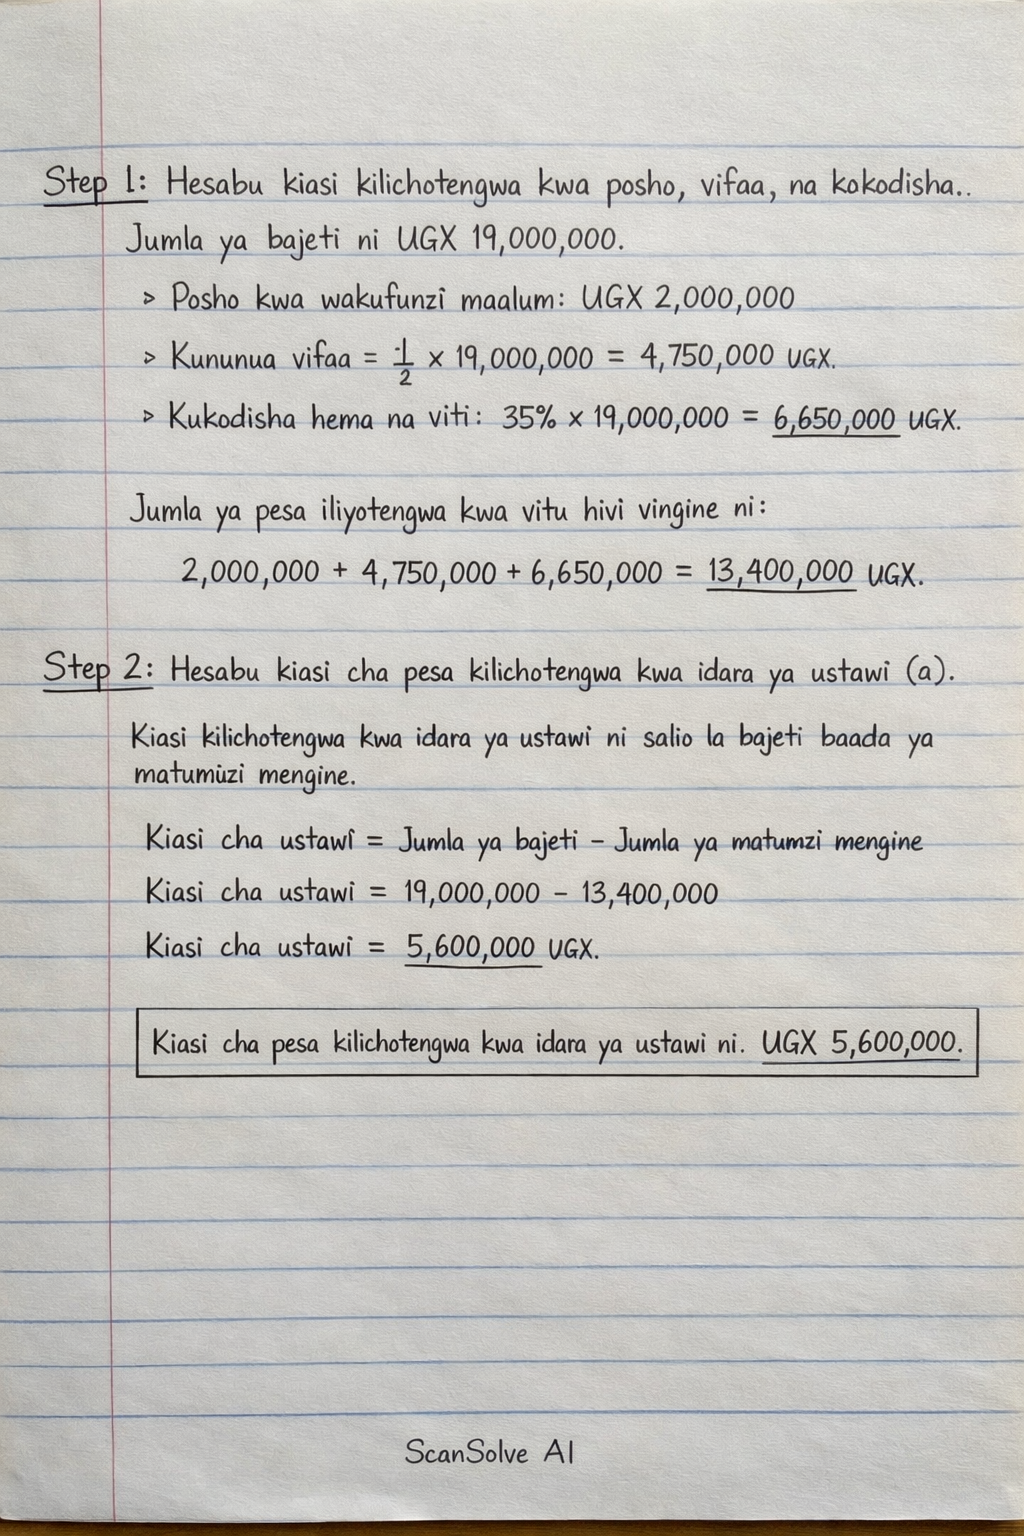 Step 1: Hesabu kiasi kilichotengwa kwa posho, vifaa, na kokodisha..
Jumla ya bajeti ni UGX 19,000,000.
> Posho kwa wakufunzi maalum: UGX 2,000,000
> Kununua vifaa = 1/2 × 19,000,000 = 4,750,000 UGX.
> Kukodisha hema na viti: 35% × 19,000,000 = 6,650,000 UGX.
Jumla ya pesa iliyotengwa kwa vitu hivi vingine ni:
2,000,000 + 4,750,000 + 6,650,000 = 13,400,000 UGX.
Step 2: Hesabu kiasi cha pesa kilichotengwa kwa idara ya ustawi (a).
Kiasi kilichotengwa kwa idara ya ustawi ni salio la bajeti baada ya
matumizi mengine.
Kiasi cha ustawi = Jumla ya bajeti – Jumla ya matumzi mengine
Kiasi cha ustawi = 19,000,000 – 13,400,000
Kiasi cha ustawi = 5,600,000 UGX.
Kiasi cha pesa kilichotengwa kwa idara ya ustawi ni. UGX 5,600,000.
ScanSolve AI